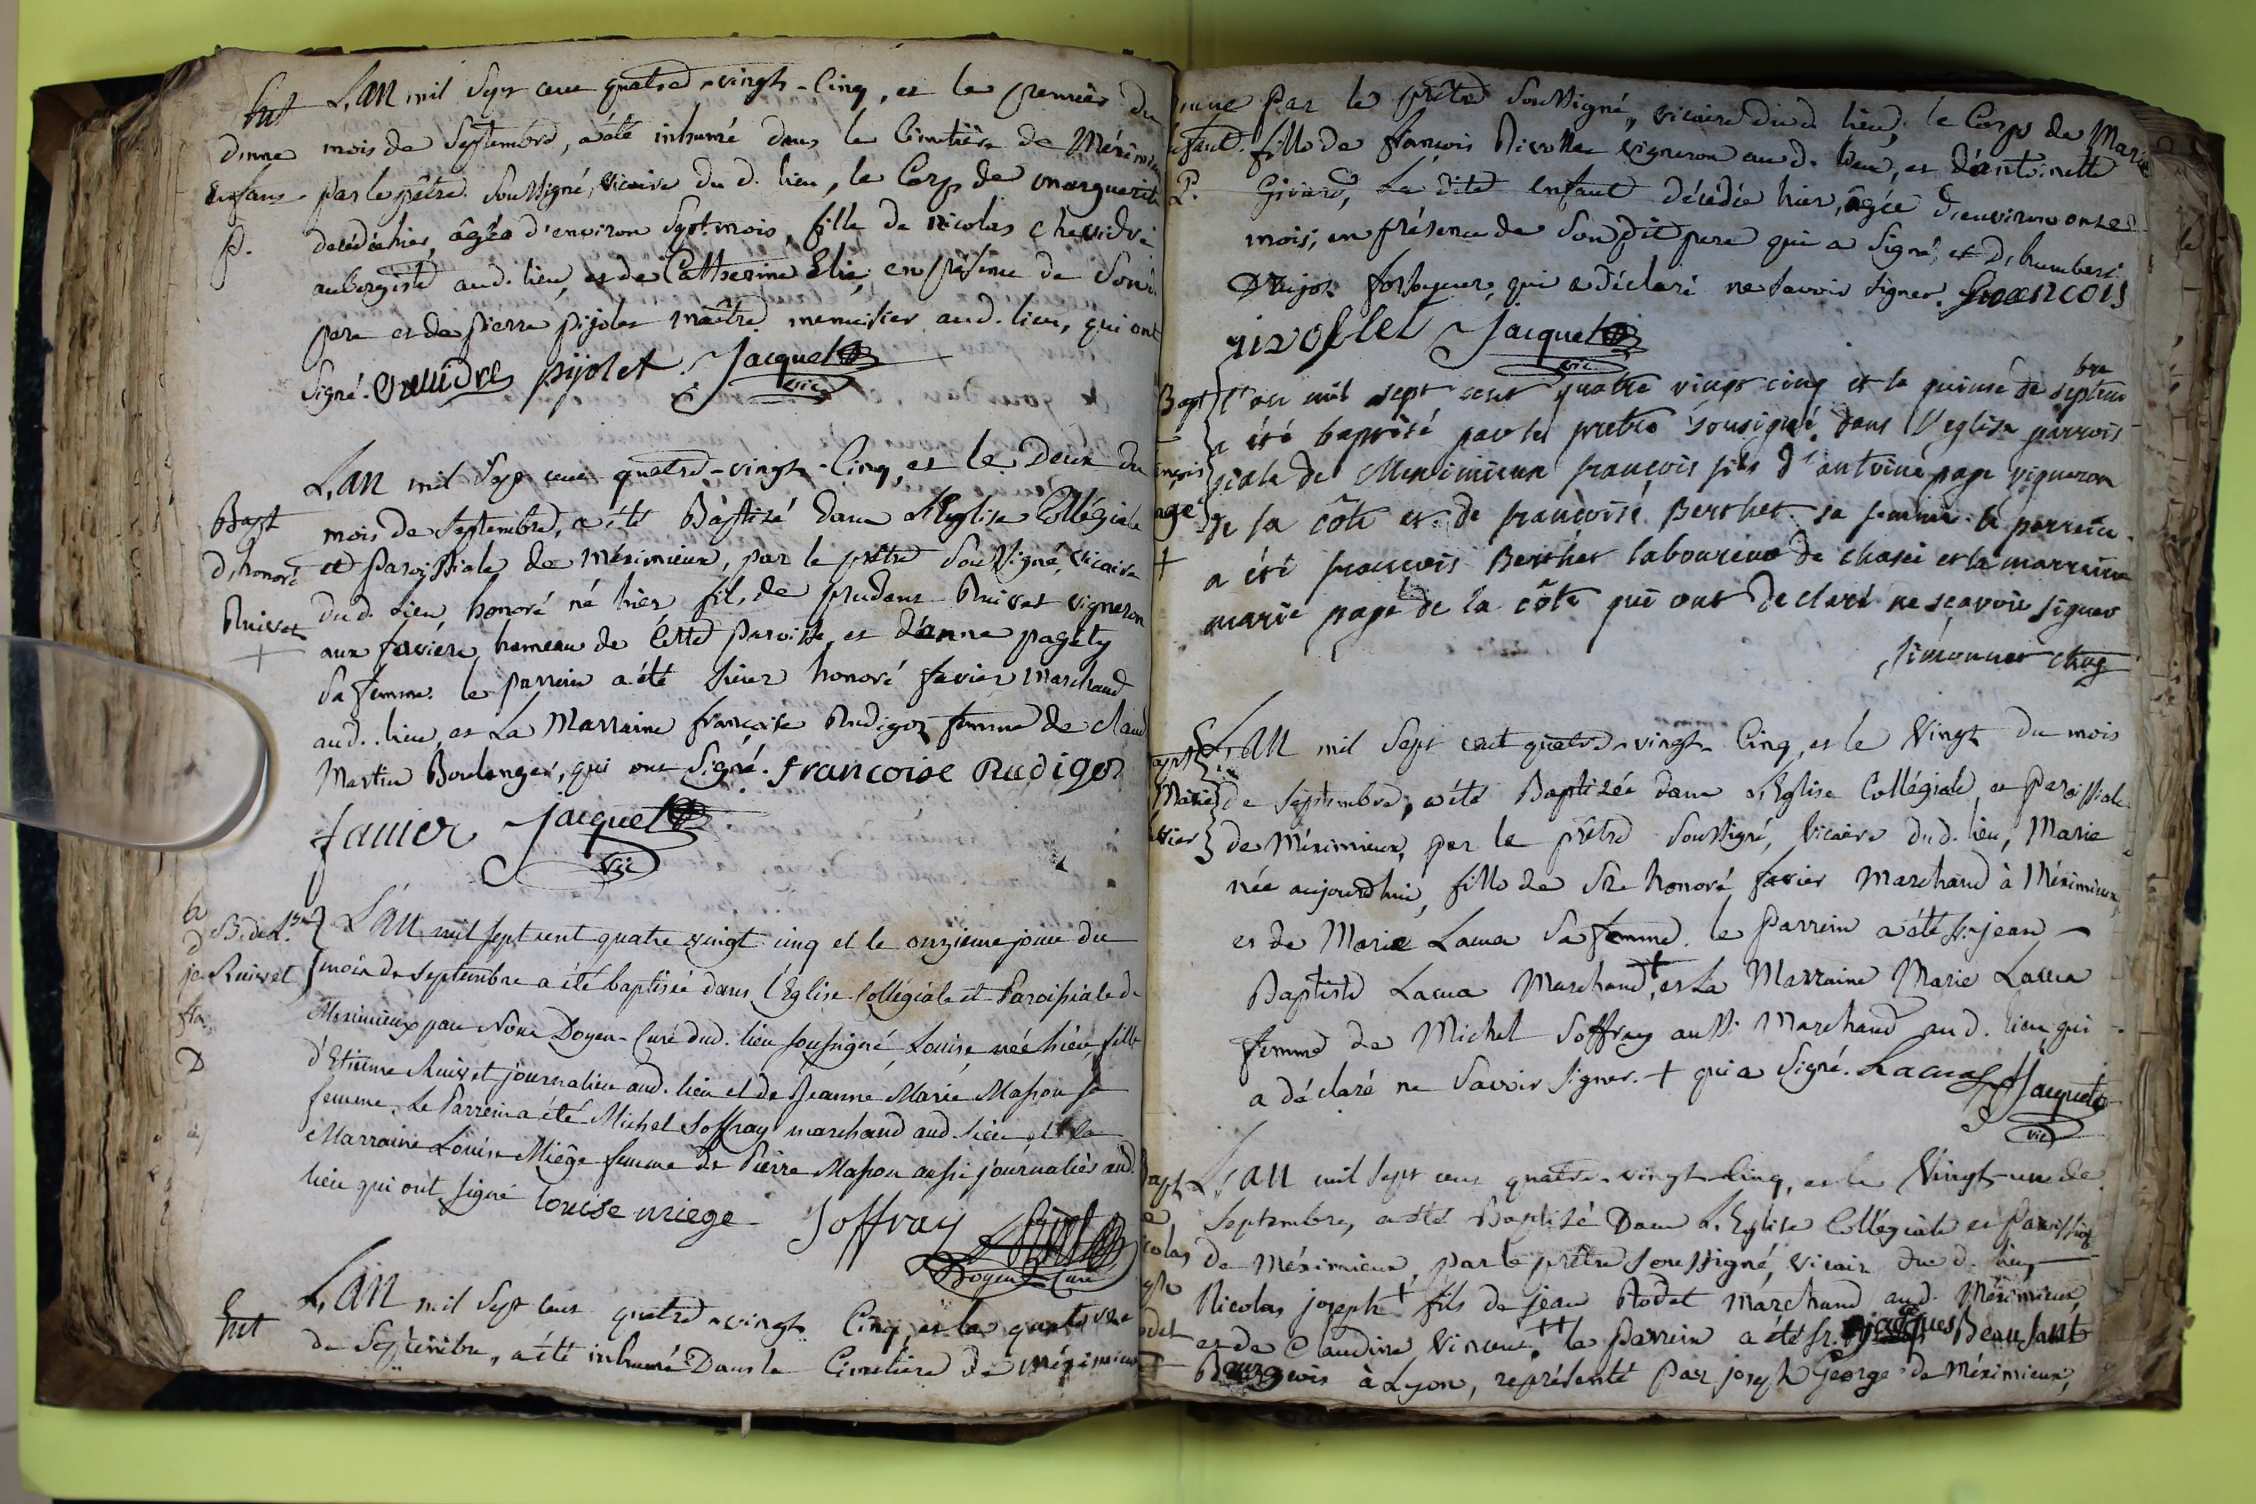 Ent
d'une
Enfans
p.
L'an mil Sept cent quatre-vingt-Cinq, et le premier du
mois de Septembre, a été inhumé dans le Cimetière de Mérimieu
par le prêtre Soussigné, Vicaire du d. lieu, le Corps de marguerite
decédée hier, âgée d'environ Sept mois, fille de nicolas
aubergiste aud. lieu, et de Catherine Elie, en présence de Sond.
pere et de pierre pijolet maître menuisier aud. lieu, qui ont
Signé. pijolet. Jacquet
vic
Bapt
d'honoré
Ruivet
+
L'an mil Sept cent quatre-vingt-Cinq, et le Deux du
mois de Septembre, a été Baptisé dans L'Eglise Collégiale
et Paroissiale de mérimieux, par le prêtre Soussigné, Vicaire
du d. Lieu, honoré né hier fils de prudent Ruivet vigneron
aux favier, hameau de Cette paroisse, et d'anne pagéty
Sa femme. le parrain a été Sieur honoré favier Marchand
aud. lieu, et La Marraine françoise Rudigoz femme de claud
Martin Boulanger, qui ont Signé. francoise Rudigoz
favier Jacquet
vic
B. de L.se
Ruivet
L'an mil sept cent quatre vingt cinq et le onzieme jour du
mois de septembre a été baptisée dans l'Eglise Collégiale et Paroissiale de
Merimieux par Nous Doyen-Curé dud. lieu soussigné, Louise née hier, fille
d'Etienne Ruivet journalier aud. lieu et de Jeanne Marie Masson sa
femme. Le Parrein a été Michel Soffray marchand aud. lieu et la
Marraine Louise Miêge femme de Pierre Masson aussi journalier aud.
lieu qui ont signé louise miege Soffray
Doyen Curé
Ent
L'an mil Sept cent quatre-vingt Cinq, et le quatorze
de Septembre, a été inhumé Dans le Cimetiere de mérimieux
par le prêtre Soussigné, vicaire du d. lieu, le Corps de Marie
fille de françois Rivollet vigneron aud. lieu, et d'antoinette
Girard, La dite enfant décédée hier, âgée d'environ onze
mois, en présence de Son dit pere qui a Signé, et d'humbert
Drujon fossoyeur, qui a déclaré ne Savoir Signer. francois
rivollet Jacquet
vic
Bapt
ançois
age
+
L'an mil sept cent quatre vingt cinq et le quinse de septem
bre
a été baptisé par les pretre sousigné dans l'eglise parrois
siale de Meximieux françois fils d'antoine page vigneron
de la côte et de françoise Berthet sa femme. le parrein
a été françois Berthet laboureur de chasei et la marraine
marie page de la côte qui ont declaré ne sçavoir signer
simonnet
apt
Marie
avier
L'an mil Sept cent quatre-vingt-Cinq, et le Vingt du mois
de Septembre, a été Baptisée dans L'Eglise Collégiale et Paroissiale
de Mérimieux, par le prêtre Soussigné, Vicaire du d. lieu, Marie
née aujourd'hui, fille de Sr. honoré favier Marchand à Mérimieux
et de Marie Lacua Sa femme. le parrein a été Sr. jean
Baptiste Lacua Marchand,+ et La Marraine Marie Lacua
femme de Michel Soffray aussi Marchand aud. lieu, qui
a déclaré ne Savoir Signer. + qui a Signé. Lacua Jacquet
vic
Bapt
colas
odet
L'an mil Sept cent quatre-vingt-Cinq, et le Vingt-un de
Septembre, a été Baptisé Dans L'Eglise Collégiale et Paroissiale
de Mérimieux, par le prêtre Soussigné, Vicaire du d. lieu
Nicolas joseph + fils de jean Rodet Marchand aud. Mérimieux,
et de Claudine Vincent.++ le Parrein a été Sr. jacques Beausant
Bourgeois à Lyon, représenté par joseph George de Mérimieux,